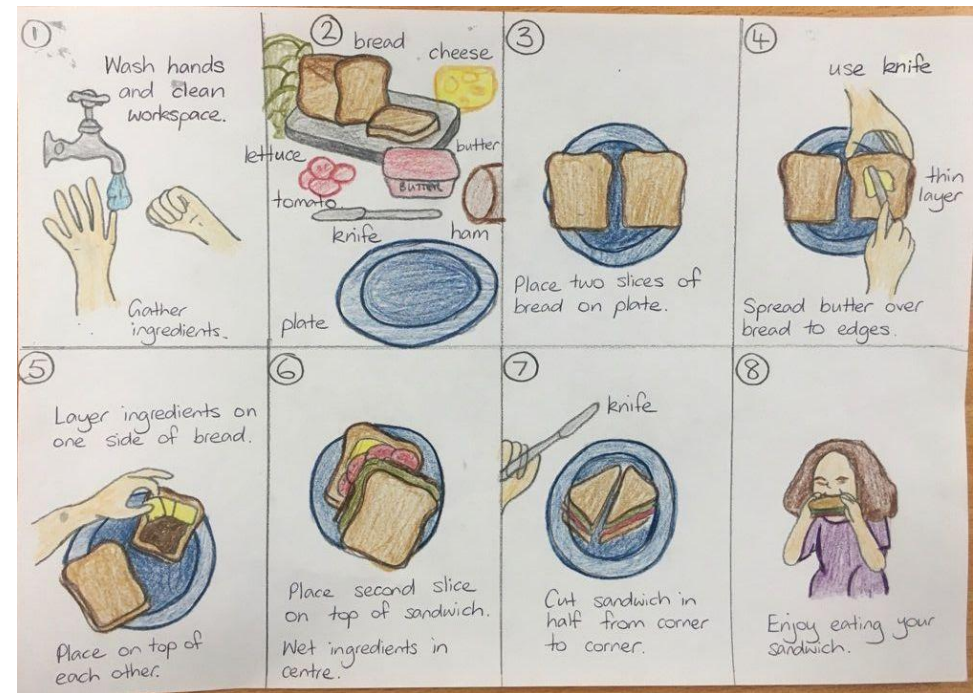 1
Wash hands
and clean
workspace.
Gather
ingredients.
2
bread
cheese
lettuce
butter
BUTTER
tomato
knife
ham
plate
3
Place two slices of
bread on plate.
4
use knife
thin
layer
Spread butter over
bread to edges.
5
Layer ingredients on
one side of bread.
Place on top of
each other.
6
Place second slice
on top of sandwich.
Wet ingredients in
centre.
7
knife
Cut sandwich in
half from corner
to corner.
8
Enjoy eating your
sandwich.